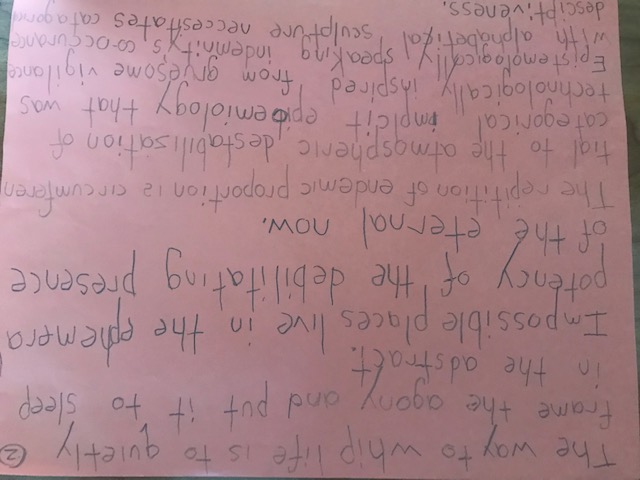 The way to whip life is to quietly ②
frame the agony and put it to sleep
in the adstract.
Impossible places live in the ephemera
potency of the debilitating presence
of the eternal now.
The repitition of endemic proportion is circumferen
tial to the atmospheric destabilization of
categorical implicit epidemiology that was
technologically inspired from gruesome vigilance
Epistemologically speaking indemnity's co-occurance
with alphabetical sculpture necessitates catagoria
desciptiveness.